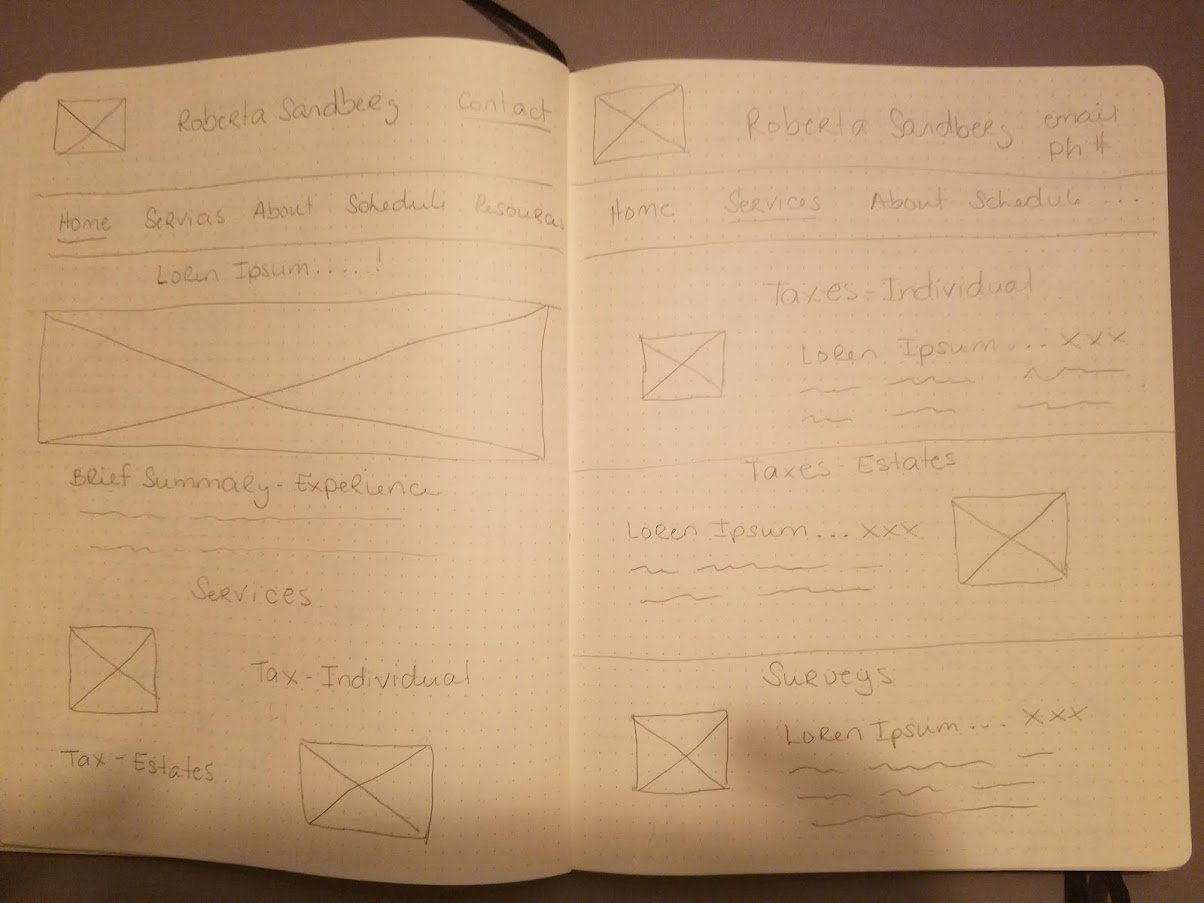 Roberta Sandberg Contact
Home Servias About Schedule Resourcas
Loren Ipsum.....!
Brief Summary - Experience
Services
Tax - Individual
Tax - Estates
Roberta Sandberg email
ph #
Home Services About Schedule ...
Taxes - Individual
Loren Ipsum... xxx
Taxes - Estates
Loren Ipsum... xxx
Surveys
Loren Ipsum... xxx